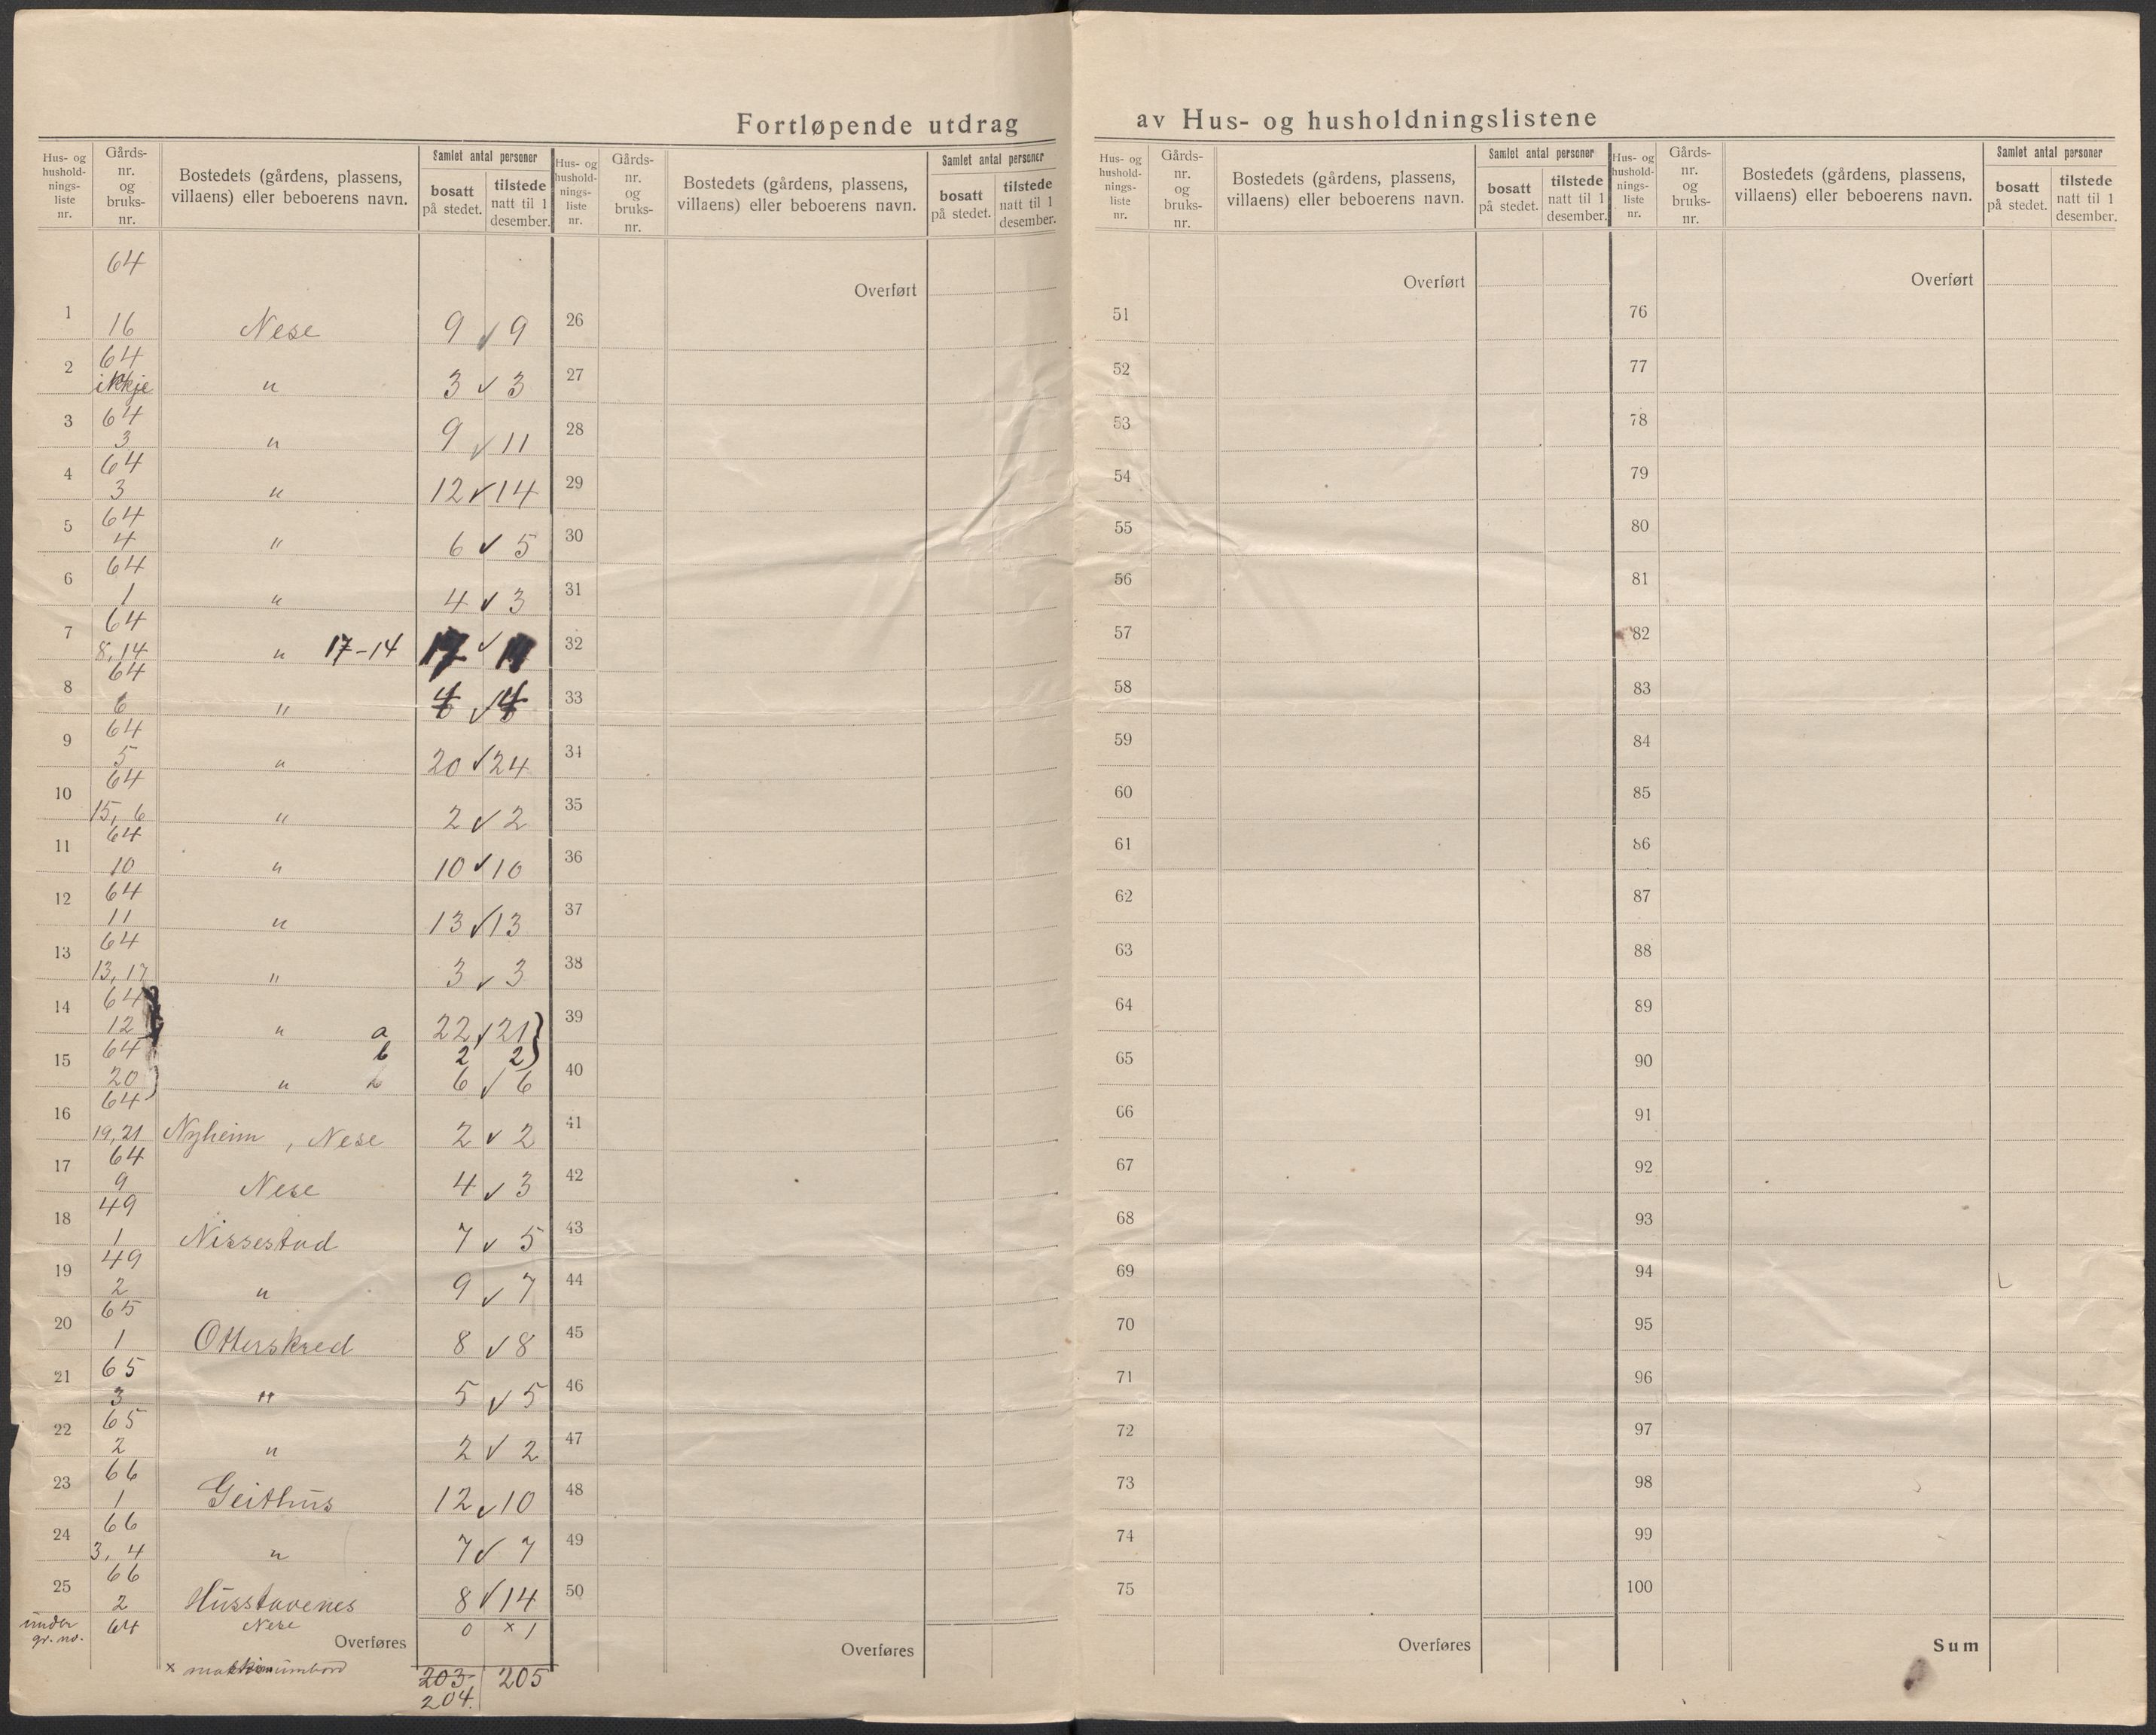 Fortløpende utdrag av Hus- og husholdningslistene
Hus- og hushold- nings- liste nr. | Gårds- nr. og bruks- nr. | Bostedets (gårdens, plassens, villaens) eller beboerens navn. | Samlet antal personer | bosatt på stedet. | tilstede natt til 1 desember.
Hus- og hushold- nings- liste nr. | Gårds- nr. og bruks- nr. | Bostedets (gårdens, plassens, villaens) eller beboerens navn. | Samlet antal personer | bosatt på stedet. | tilstede natt til 1 desember.
Hus- og hushold- nings- liste nr. | Gårds- nr. og bruks- nr. | Bostedets (gårdens, plassens, villaens) eller beboerens navn. | Samlet antal personer | bosatt på stedet. | tilstede natt til 1 desember.
Hus- og hushold- nings- liste nr. | Gårds- nr. og bruks- nr. | Bostedets (gårdens, plassens, villaens) eller beboerens navn. | Samlet antal personer | bosatt på stedet. | tilstede natt til 1 desember.
1 64 16 Nese 9 ✓ 9
2 64 ikkje " 3 ✓ 3
3 64 3 " 9 ✓ 11
4 64 3 " 12 ✓ 14
5 64 4 " 6 ✓ 5
6 64 1 " 4 ✓ 3
7 64 8,14 " 17-14 17 ✓
8 64 6 " 4 ✓ 4
9 64 5 " 20 ✓ 24
10 64 15, 6 " 2 ✓ 2
11 64 10 " 10 ✓ 10
12 64 11 " 13 ✓ 13
13 64 13, 17 " 3 ✓ 3
14 64 12 " a 22 ✓ 21
b 2 2
15 64 20 " 6 ✓ 6
16 64 19,21 Nyheim, Nese 2 ✓ 2
17 64 9 Nese 4 ✓ 3
18 49 1 Nissestad 7 ✓ 5
19 49 2 " 9 ✓ 7
20 65 1 Otterskred 8 ✓ 8
21 65 3 " 5 ✓ 5
22 65 2 " 2 ✓ 2
23 66 1 Geithus 12 ✓ 10
24 66 3, 4 " 7 ✓ 7
25 66 2 Husstavenes 8 ✓ 14
under gr. no. 64 Nese 0 × 1
Overføres
203 205
204.
Overført
26
27
28
29
30
31
32
33
34
35
36
37
38
39
40
41
42
43
44
45
46
47
48
49
50
Overføres
Overført
51
52
53
54
55
56
57
58
59
60
61
62
63
64
65
66
67
68
69
70
71
72
73
74
75
Overføres
Overført
76
77
78
79
80
81
82
83
84
85
86
87
88
89
90
91
92
93
94
95
96
97
98
99
100
Sum